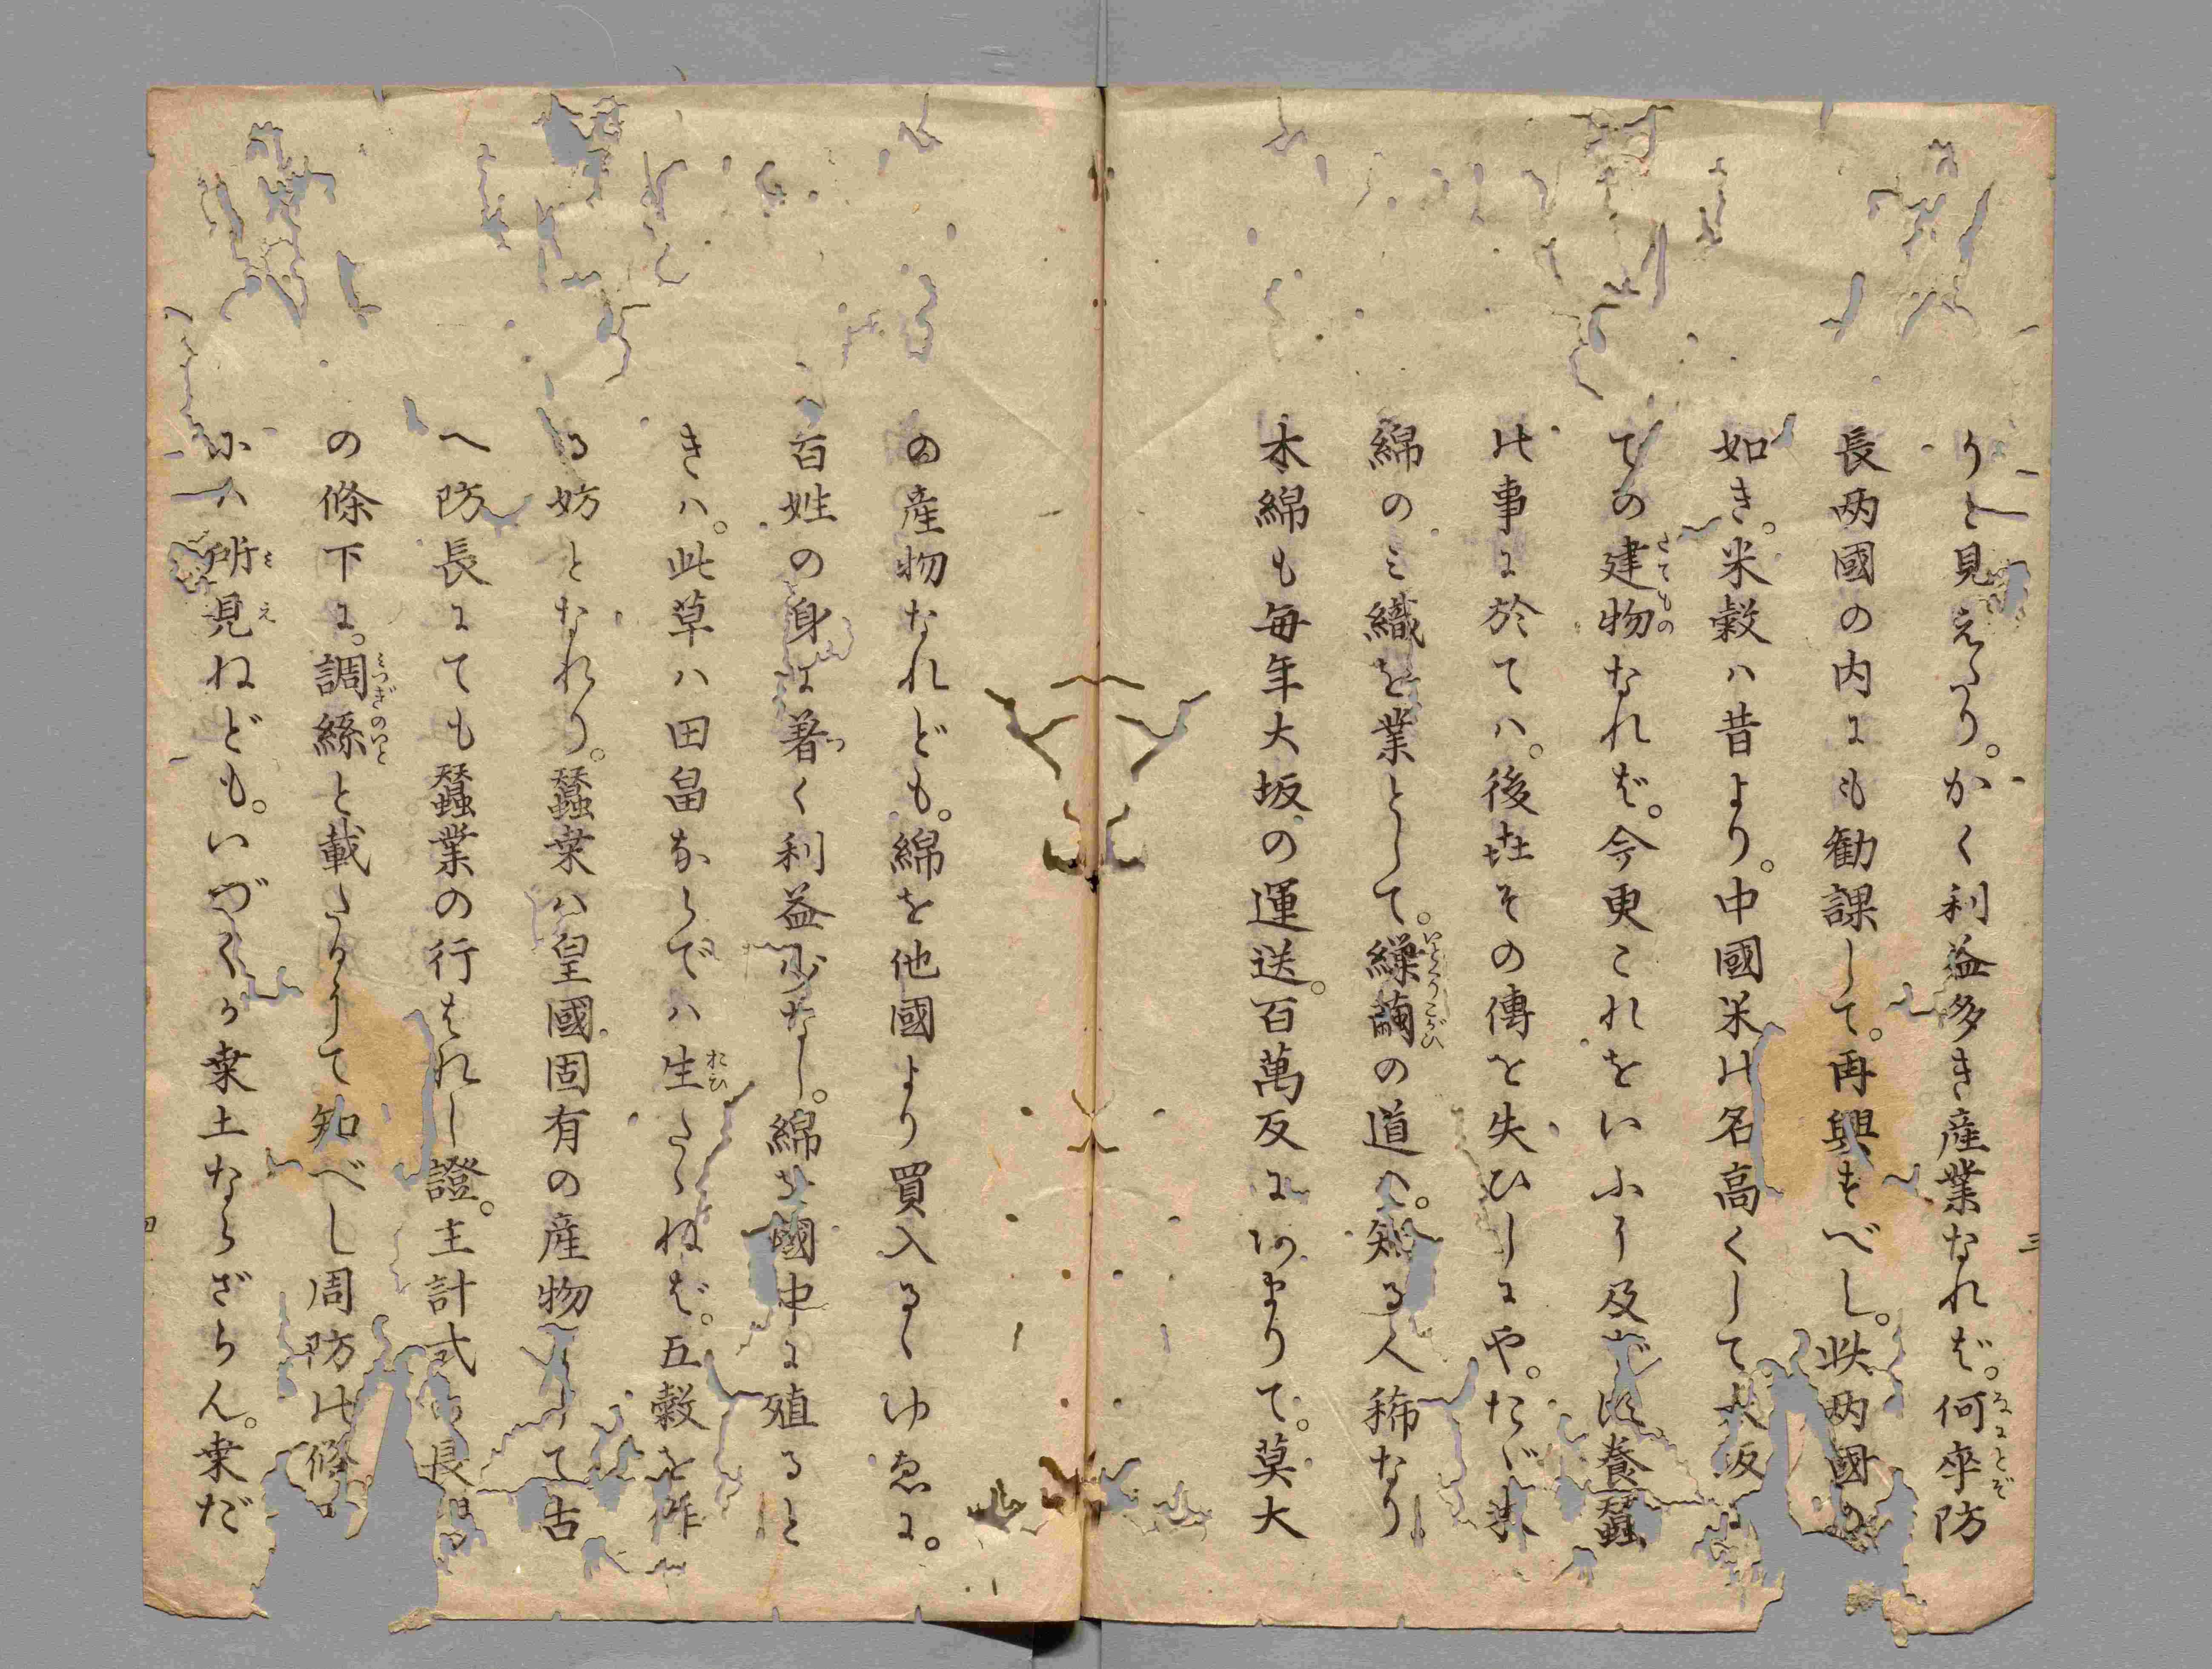 りと見えたり。かく利益多き産業なれば。何卒防
長両國の内にも勧課して。再興すべし。此両國の
如き。米穀ハ昔より。中國米の名高くして大坂に
ての建物なれば。今更これをいふに及ばず養蠶
の事に於てハ。後世その傳を失ひしにや。たゞ木
綿のミ織を業として。繰繭の道ハ。知る人稀なり
木綿も毎年大坂の運送。百萬反にあまりて。莫大
の産物なれども。綿を他國より買入るゝゆゑに。
百姓の身に著く利益少なし。綿を國中に殖ると
きハ。此草ハ田畠ならでハ生たゝねば。五穀を作
る妨となれり。蠶桒ハ皇國固有の産物にて古
へ防長にても蠶業の行はれし證。主計式に長門
の條下に。調絲と載たるにて知べし周防の條に
ハ所見ねども。いづくか桒土ならざらん。桒だ
なにとぞ
たてもの
いとくりこがひ
つ
おひ
ミつぎのいと
ミえ
三
四